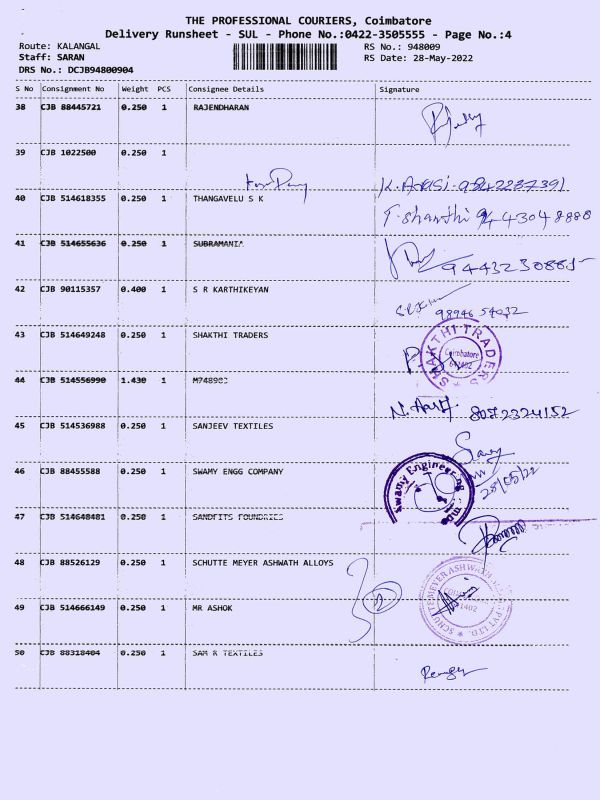 THE PROFESSIONAL COURIERS, Coimbatore
Delivery Runsheet - SUL - Phone No.:0422-3505555 - Page No.:4
Route: KALANGAL RS No.: 948009
Staff: SARAN RS Date: 28-May-2022
DRS No.: DCJB94800904
S No Consignment No Weight PCS Consignee Details Signature
38 CJB 88445721 0.250 1 RAJENDHARAN
39 CJB 1022500 0.250 1
K. Arasi 9842287391
40 CJB 514618355 0.250 1 THANGAVELU S K
T. Shanthi 94 43048888
41 CJB 514655636 0.250 1 SUBRAMANIA
9443230885
42 CJB 90115357 0.400 1 S R KARTHIKEYAN
98946 54032
43 CJB 514649248 0.250 1 SHAKTHI TRADERS
SHAKTHI TRADERS Coimbatore
44 CJB 514556990 1.430 1 M748903
8072324152
45 CJB 514536988 0.250 1 SANJEEV TEXTILES
46 CJB 88455588 0.250 1 SWAMY ENGG COMPANY
Swamy Engineering
28/05/22
47 CJB 514648481 0.250 1 SANDFITS FOUNDRIES
48 CJB 88526129 0.250 1 SCHUTTE MEYER ASHWATH ALLOYS
SCHUTTE MEYER ASHWATH PVT LTD.
49 CJB 514666149 0.250 1 MR ASHOK
50 CJB 88318404 0.250 1 SAM R TEXTILES